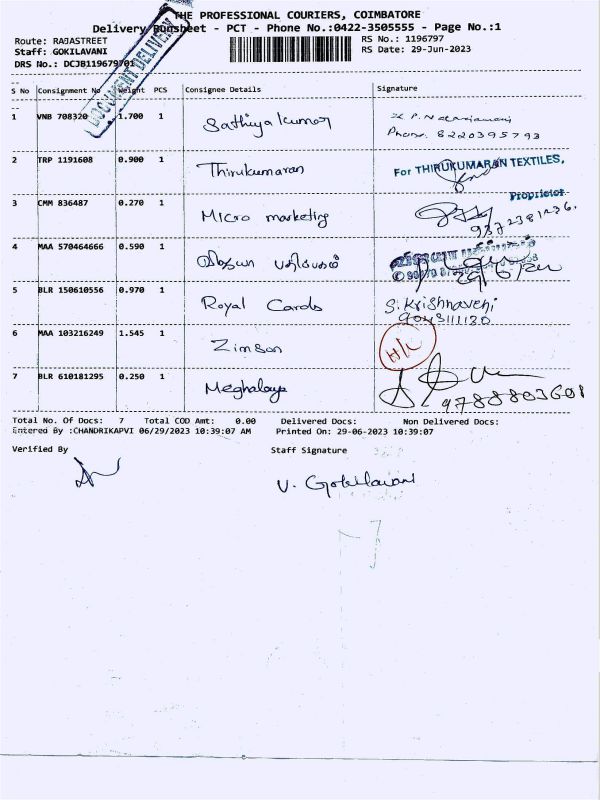 THE PROFESSIONAL COURIERS, COIMBATORE
Delivery Runsheet - PCT - Phone No.:0422-3505555 - Page No.:1
Route: RAJASTREET
RS No.: 1196797
Staff: GOKILAVANI
RS Date: 29-Jun-2023
DRS No.: DCJB119679701
DOCUMENT DELIVERY
S No Consignment No Weight PCS Consignee Details Signature
1 VNB 708320 1.700 1 Sathiya kumar
Phone. 8220395793
2 TRP 1191608 0.900 1 Thirukumaran
For THIRUKUMARAN TEXTILES,
Proprietor
3 CMM 836487 0.270 1 Micro marketing
9372381236.
4 MAA 570464666 0.590 1
5 BLR 150610556 0.970 1 Royal Cards S. Krishnaveni
9043111130
6 MAA 103216249 1.545 1 Zimson H/L
7 BLR 610181295 0.250 1 Meghalaya
9788803608
Total No. Of Docs: 7 Total COD Amt: 0.00 Delivered Docs: Non Delivered Docs:
Entered By :CHANDRIKAPVI 06/29/2023 10:39:07 AM Printed On: 29-06-2023 10:39:07
Verified By Staff Signature
V. Gokilavani